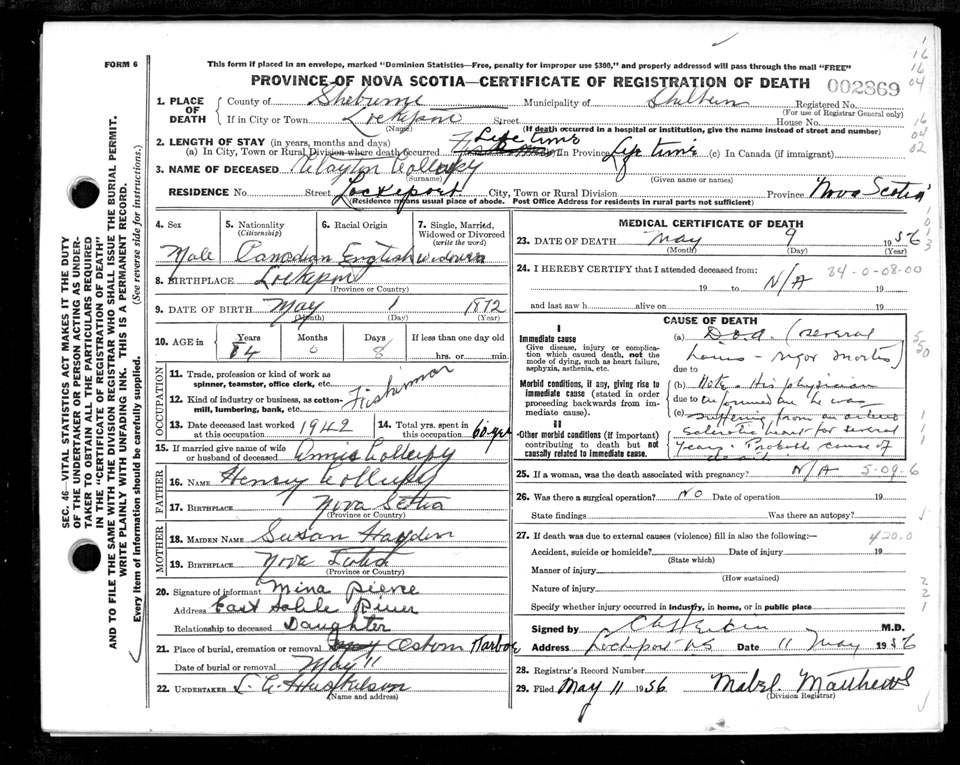 FORM 6
This form if placed in an envelope, marked "Dominion Statistics—Free, penalty for improper use $300," and properly addressed will pass through the mail "FREE"
PROVINCE OF NOVA SCOTIA—CERTIFICATE OF REGISTRATION OF DEATH
002869
1. PLACE OF DEATH
County of Shelburne Municipality of Registered No.
(For use of Registrar General only)
If in City or Town Lockeport Street House No.
(Name) (If death occurred in a hospital or institution, give the name instead of street and number)
2. LENGTH OF STAY (in years, months and days)
(a) In City, Town or Rural Division where death occurred Life time (b) In Province Life time (c) In Canada (if immigrant)
3. NAME OF DECEASED
(Surname) (Given name or names)
RESIDENCE No. Street Lockeport City, Town or Rural Division Province Nova Scotia
(Residence means usual place of abode. Post Office Address for residents in rural parts not sufficient)
4. Sex
Male
5. Nationality
(Citizenship)
Canadian
6. Racial Origin
English
7. Single, Married, Widowed or Divorced
(write the word)
8. BIRTHPLACE Lockeport
(Province or Country)
9. DATE OF BIRTH May 1 1872
(Month) (Day) (Year)
10. AGE in Years Months Days If less than one day old
84 0 8 hrs. or min.
OCCUPATION
11. Trade, profession or kind of work as spinner, teamster, office clerk, etc.
12. Kind of industry or business, as cotton-mill, lumbering, bank, etc. Fisherman
13. Date deceased last worked at this occupation 1942
14. Total yrs. spent in this occupation 60 yrs
15. If married give name of wife or husband of deceased
FATHER
16. NAME Henry
17. BIRTHPLACE Nova Scotia
(Province or Country)
MOTHER
18. MAIDEN NAME Susan Hayden
19. BIRTHPLACE Nova Scotia
(Province or Country)
20. Signature of informant Mina Pierce
Address East Sable River
Relationship to deceased Daughter
21. Place of burial, cremation or removal Osborn Harbor
Date of burial or removal May 11
22. UNDERTAKER
(Name and address)
MEDICAL CERTIFICATE OF DEATH
23. DATE OF DEATH May 9 1956
(Month) (Day) (Year)
24. I HEREBY CERTIFY that I attended deceased from:
19 to N/A 19
84-0-08-00
and last saw h alive on 19
CAUSE OF DEATH
I
Immediate cause
Give disease, injury or complication which caused death, not the mode of dying, such as heart failure, asphyxia, asthenia, etc.
Morbid conditions, if any, giving rise to immediate cause (stated in order proceeding backwards from immediate cause).
II
Other morbid conditions (if important) contributing to death but not causally related to immediate cause.
(a) D.o.a. (several
hours - rigor mortis)
due to
(b) Note - His physician
due to informed me he was
(c) suffering from an arterio
sclerotic heart for several
years. Probable cause of
death
25. If a woman, was the death associated with pregnancy? N/A 5-09-6
26. Was there a surgical operation? NO Date of operation 19
State findings Was there an autopsy?
27. If death was due to external causes (violence) fill in also the following: 420.0
Accident, suicide or homicide? Date of injury 19
(State which)
Manner of injury
(How sustained)
Nature of injury
Specify whether injury occurred in industry, in home, or in public place
Signed by M.D.
Address Lockeport NS Date 11 May 1956
28. Registrar's Record Number
29. Filed May 11 1956 Mabel Matthews
(Division Registrar)
SEC. 46—VITAL STATISTICS ACT MAKES IT THE DUTY OF THE UNDERTAKER OR PERSON ACTING AS UNDERTAKER TO OBTAIN ALL THE PARTICULARS REQUIRED IN THE "CERTIFICATE OF REGISTRATION OF DEATH" AND TO FILE THE SAME WITH THE DIVISION REGISTRAR WHO SHALL ISSUE THE BURIAL PERMIT.
WRITE PLAINLY WITH UNFADING INK. THIS IS A PERMANENT RECORD.
Every item of information should be carefully supplied. (See reverse side for instructions.)